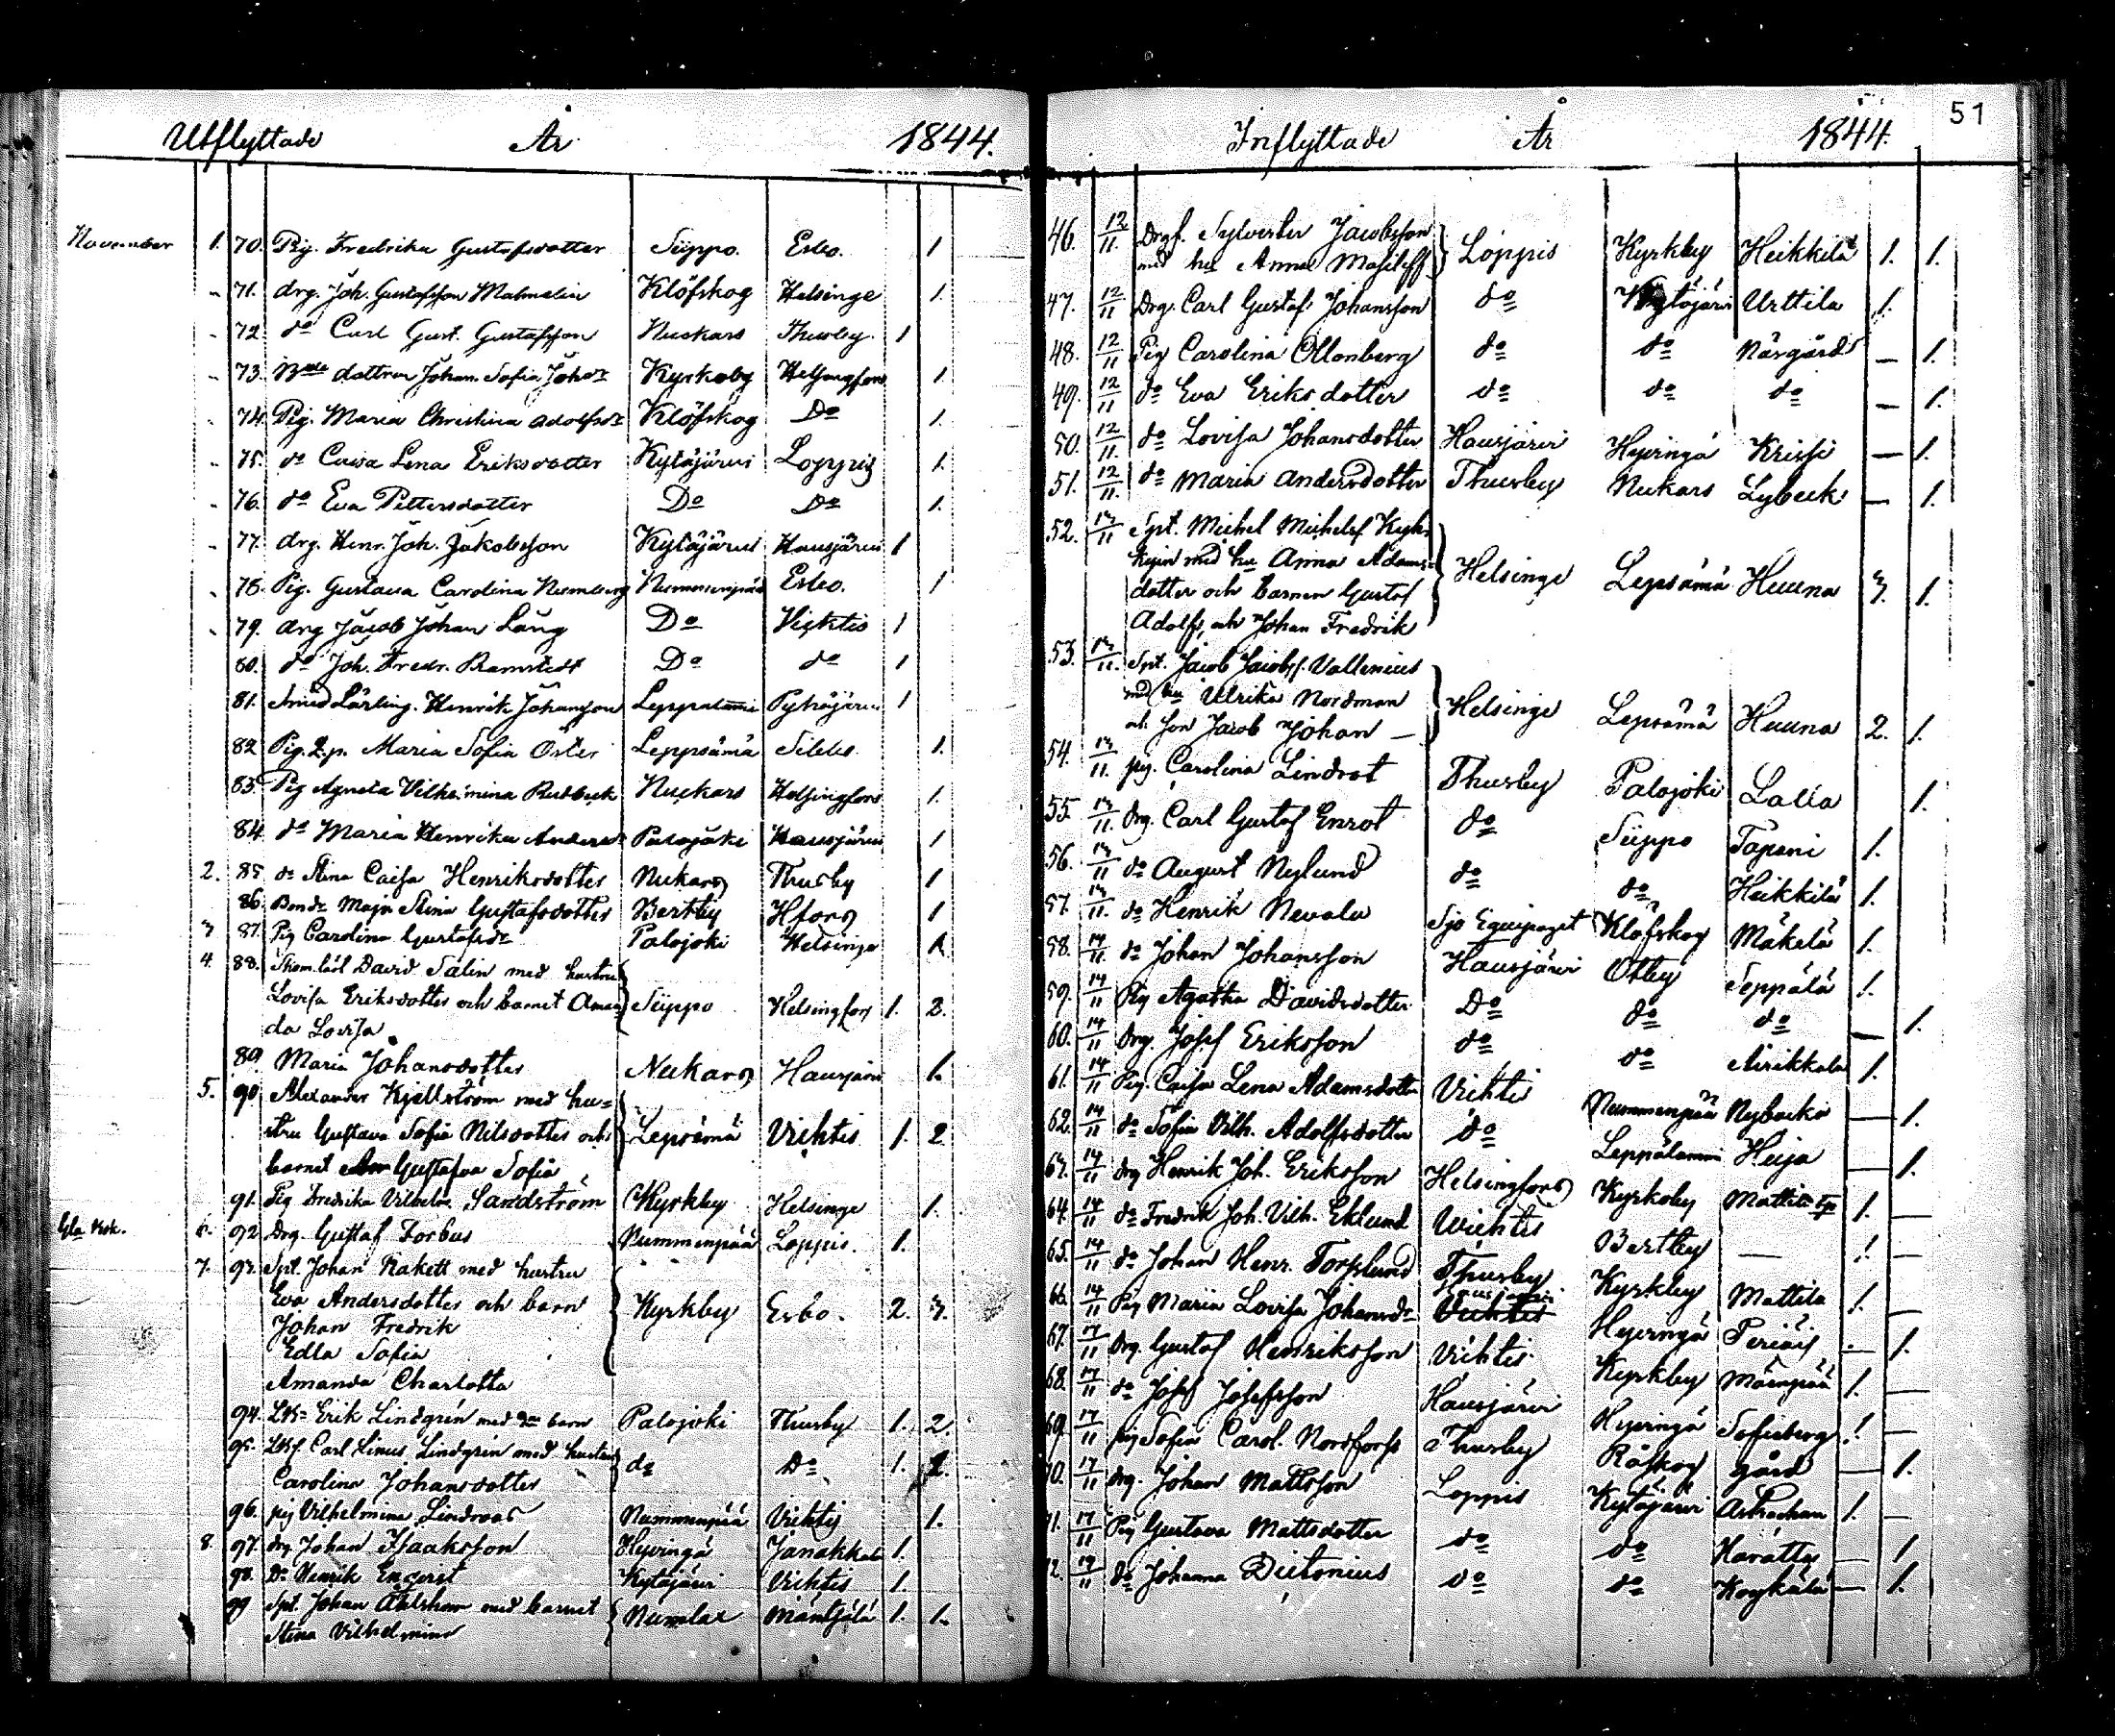 Utflyttade År 1844.
November 1. 70. Pig. Fredrika Gustafsdotter Siippo. Esbo. 1
71. drg. Joh. Gustafsson Malmelin Klöfskog Helsinge 1.
72. do Carl Gust. Gustafsson Nuckars Thusby. 1
73. dottren Johan. Sofia Johsdr Kyrkoby Helsingfors 1.
74. Pig. Maria Christina Adolfsdr Klöfskog Do 1.
75. do Caisa Lena Eriksdotter Kytäjärvi Loppis 1.
76. do Eva Pettersdotter Do Do 1.
77. drg. Henr. Joh. Jakobsson Kytäjärvi Hausjärvi 1
78. Pig. Gustava Carolina Nurmberg Nummenpää Esbo. 1
79. drg Jacob Johan Lång Do Vichtis 1
80. do Joh. Fredr. Ramstedt Do do 1
81. Smed Lärling. Henrik Johansson Leppälammi 1
82. Pig. Maria Sofia Öster Leppsämä Sibbo 1.
83. Pig Agneta Vilhelmina Rudbeck Nuckars Helsingfors 1.
84. do Maria Henrika Andersdr Palojoki Hausjärvi 1
2. 85. do Stina Caisa Henriksdotter Nukars Thusby 1
86. Bondr Maja Stina Gustafsdotter Bertby Hfors 1
3. 87. Pig Carolina Gustafsdr Palojoki Helsinge 1.
4. 88. David Salin med hustru
Lovisa Eriksdotter och barnet Aman- Siippo Helsingfors 1. 2.
da Lovisa
89. Maria Johansdotter Nukars Hausjärvi 1.
5. 90. Alexander Kjellström med hu=
stru Gustava Sofia Nilsdotter och Lepsämä Vichtis 1. 2
barnet Gustafva Sofia
91. Pig Fredrika Vilhelm. Sandström Kyrkby Helsinge 1.
6. 92. Drg. Gustaf Forbus Nummenpää Loppis. 1.
7. 93. Spt. Johan Rakett med hustru
Eva Andersdotter och barn Kyrkby Esbo. 2. 3.
Johan Fredrik
Edla Sofia
Amanda Charlotta
94. Erik Lindgrén med 2ne barn Palojoki Thusby 1. 2.
95. Carl Linus Lindgrén med hustru do Do 1. 1.
Carolina Johansdotter
96. pig Vilhelmina Lindroos Nummenpää Vichtis 1.
8. 97. drg. Johan Isaaksson Hyvingä Janakkala 1.
98. Do Henrik Enqvist Kytäjärvi Vichtis 1.
99. Spt. Johan Åhlsham med barnet Numlax Mäntsälä 1. 1.
Stina Vilhelmina
51
Inflyttade År 1844.
46. 12/11. Drgs. Sylvester Jacobsson
med hu Anna Masileff Loppis Kyrkby Heikkilä 1. 1.
47. 12/11 Drg. Carl Gustaf Johansson do Kytäjärvi Urttila 1.
48. 12/11 Pig Carolina Ollonberg do do Närgårds — 1.
49. 12/11 do Eva Eriksdotter do do do — 1.
50. 12/11. do Lovisa Johansdotter Hausjärvi Hyvingä Krissi — 1.
51. 12/11. do Maria Andersdotter Thusby Nukars Lybeck — 1.
52. 13/11 Spt. Michel Michelss
med hu Anna Adams=
dotter och barnen Gustaf Helsinge Lepsämä Huuna 3. 1.
Adolf, och Johan Fredrik
53. 13/11. Spt. Jacob Jacobss. Vallenius
med hu Ulrika Nordman Helsinge Lepsämä Huuna 2. 1.
och son Jacob Johan —
54. 13/11. pig. Carolina Lindrot Thusby Palojoki Lalla 1.
55. 13/11. drg. Carl Gustaf Enrot do Siippo Tapani 1.
56. 13/11 do August Nylund do do Heikkilä 1.
57. 13/11. do Henrik Nevalu Sjö Equipaget Klöfskog Mäkelä 1.
58. 14/11. do Johan Johansson Hausjärvi Otby Seppälä 1.
59. 14/11 Pig Agatha Davidsdotter Do do do — 1.
60. 14/11 drg. Josef Eriksson do do Airikkala 1.
61. 14/11 Pig. Caisa Lena Adamsdotter Vichtis Nummenpää Nybacka — 1.
62. 14/11 do Sofia Vilh. Adolfsdotter do Leppälammi Heija — 1.
63. 14/11 drg Henrik Joh. Eriksson Helsingfors Kyrkoby Mattila 1. —
64. 14/11 do Fredrik Joh. Vilh. Eklund Wichtis Bertby — 1. —
65. 14/11 do Johan Henr. Forslund Thusby Kyrkby Mattila 1. —
66. 14/11 Pig Maria Lovisa Johansdr Hausjärvi Vichtis Hyvingä — 1.
67. 17/11 Drg. Gustaf Henriksson Vichtis. Kyrkby 1. —
68. 17/11 do Josef Josefsson Hausjärvi Hyvingä Sofieberg 1. —
69. 17/11 pig Sofia Carol. Nordforss Thusby Råskog gård — 1.
70. 17/11 drg. Johan Mattsson Loppis Kytäjärvi Astrachan 1. —
71. 17/11 Pig Gustava Mattsdotter do do — 1
72. 19/11 do Johanna Dietonius do do — 1.